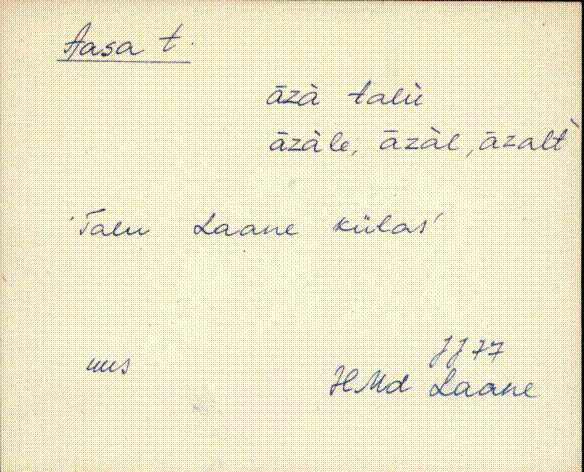 Aasa t.
āzà talù
āzàle, āzàl, āzalt̀
'Talu Laane külas'
JJ 77
uus
HMd Laane